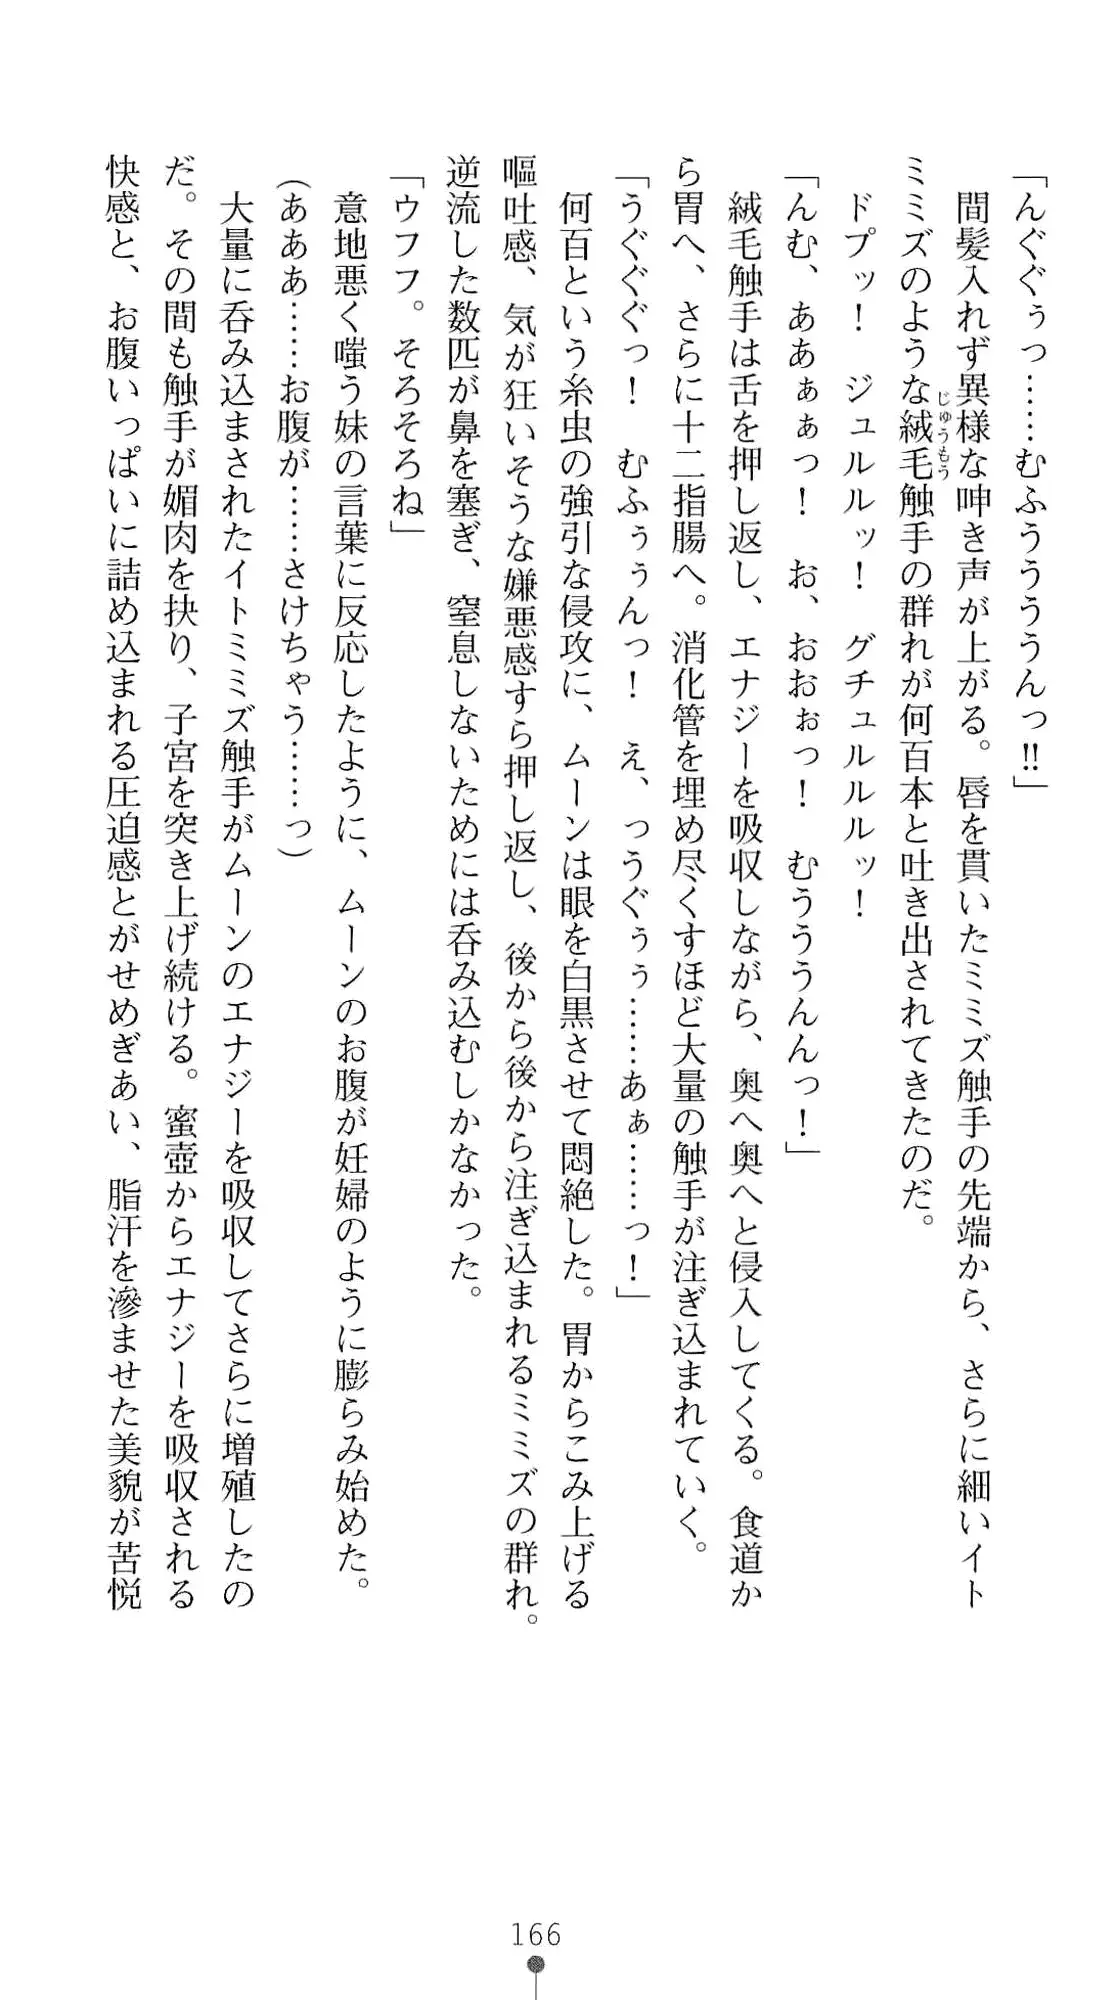 「んぐぐぅっ……むふぅううううんっ!!」
間髪入れず異様な呻き声が上がる。唇を貫いたミミズ触手の先端から、さらに細いイト
ミミズのような絨毛触手の群れが何百本と吐き出されてきたのだ。
じゅうもう
ドプッ！　ジュルルッ！　グチュルルルッ！
「んむ、ああぁぁっ！　お、おおぉっ！　むうううんんっ！」
絨毛触手は舌を押し返し、エナジーを吸収しながら、奥へ奥へと侵入してくる。食道か
ら胃へ、さらに十二指腸へ。消化管を埋め尽くすほど大量の触手が注ぎ込まれていく。
「うぐぐぐっ！　むふぅぅんっ！　え、っうぐぅぅ……あぁ……っ！」
何百という糸虫の強引な侵攻に、ムーンは眼を白黒させて悶絶した。胃からこみ上げる
嘔吐感、気が狂いそうな嫌悪感すら押し返し、後から後から注ぎ込まれるミミズの群れ。
逆流した数匹が鼻を塞ぎ、窒息しないためには呑み込むしかなかった。
「ウフフ。そろそろね」
意地悪く嗤う妹の言葉に反応したように、ムーンのお腹が妊婦のように膨らみ始めた。
（あああ……お腹が……さけちゃう……っ）
大量に呑み込まされたイトミミズ触手がムーンのエナジーを吸収してさらに増殖したの
だ。その間も触手が媚肉を抉り、子宮を突き上げ続ける。蜜壺からエナジーを吸収される
快感と、お腹いっぱいに詰め込まれる圧迫感とがせめぎあい、脂汗を滲ませた美貌が苦悦
166